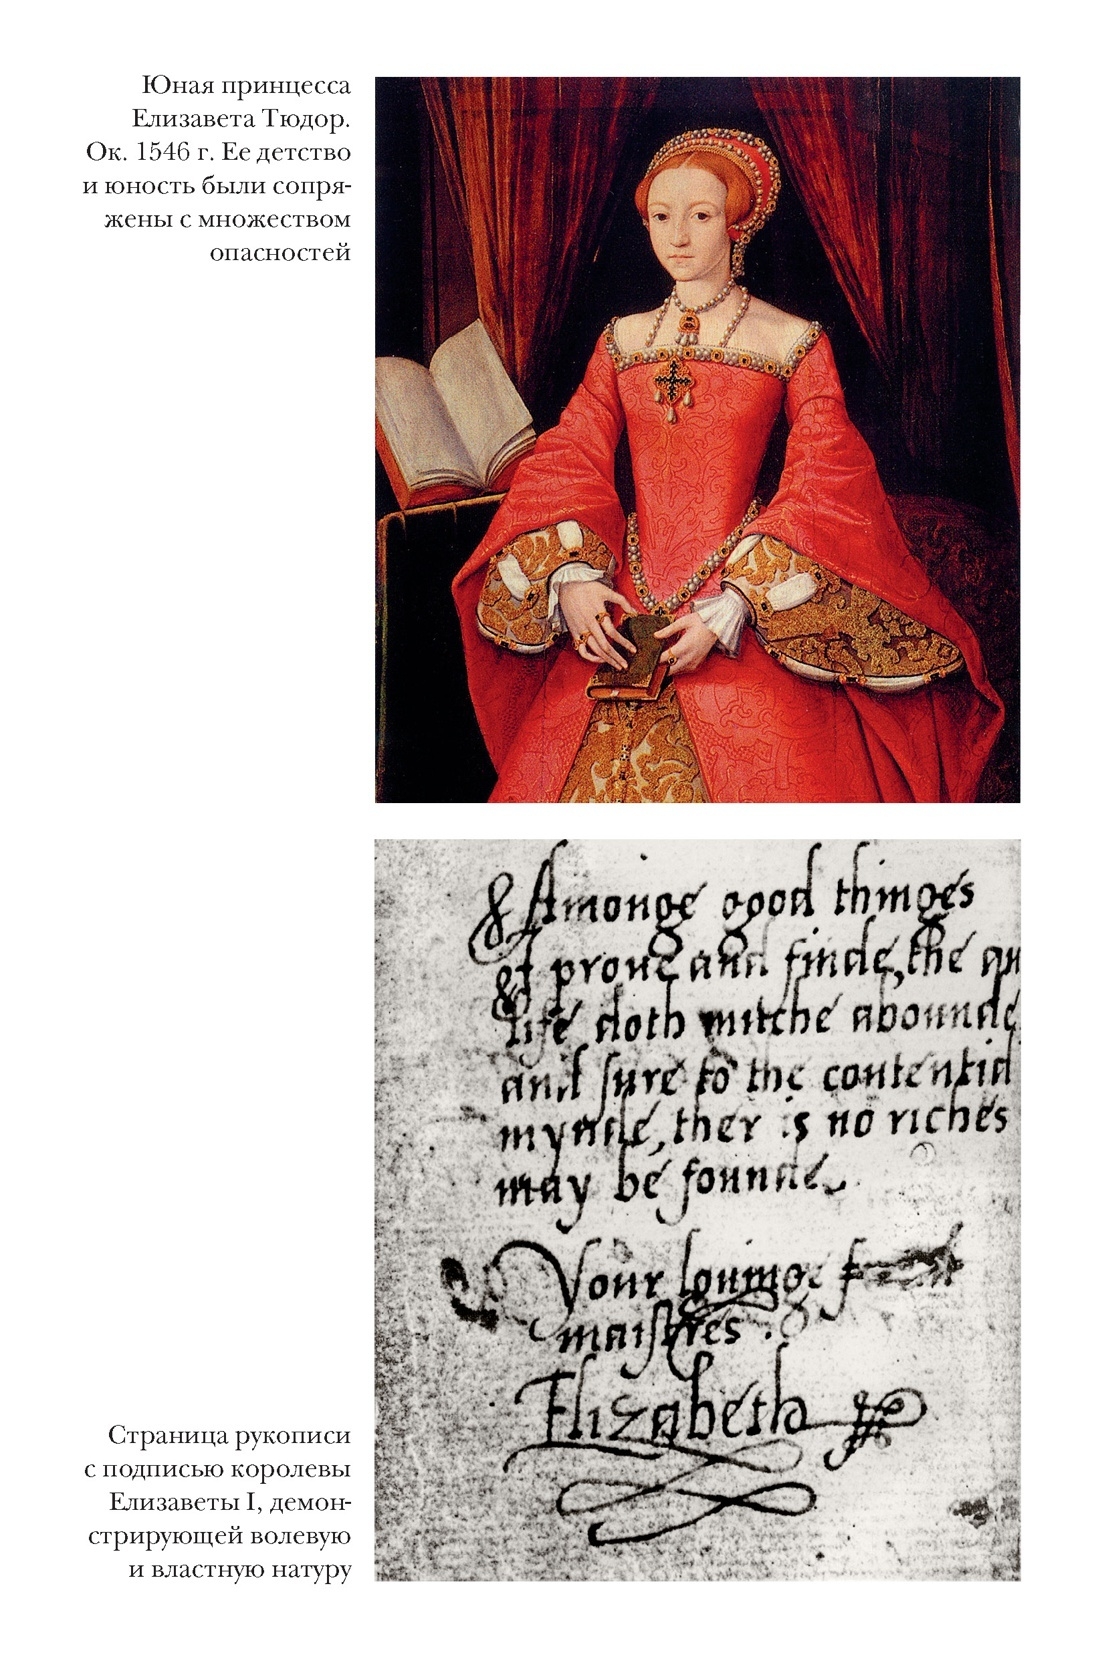 Юная принцесса
Елизавета Тюдор.
Ок. 1546 г. Ее детство
и юность были сопря-
жены с множеством
опасностей
Amonge good thinges
I prove and finde, the qu
life doth mutche abounde
and sure to the contentid
mynde, ther is no riches
may be founde.
Your lovinge
maistres.
Elizabeth
Страница рукописи
с подписью королевы
Елизаветы I, демон-
стрирующей волевую
и властную натуру